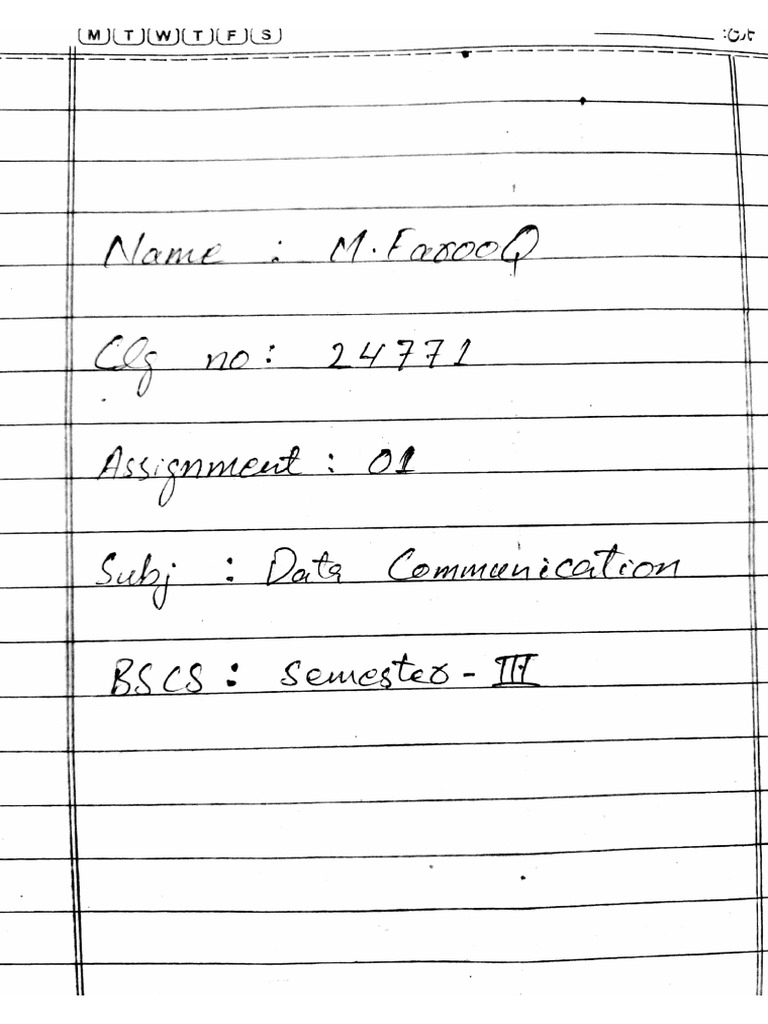 M T W T F S تاریخ:
Name : M. FarooQ
Clg no: 24771
Assignment : 01
Subj : Data Communication
BSCS : Semester - III